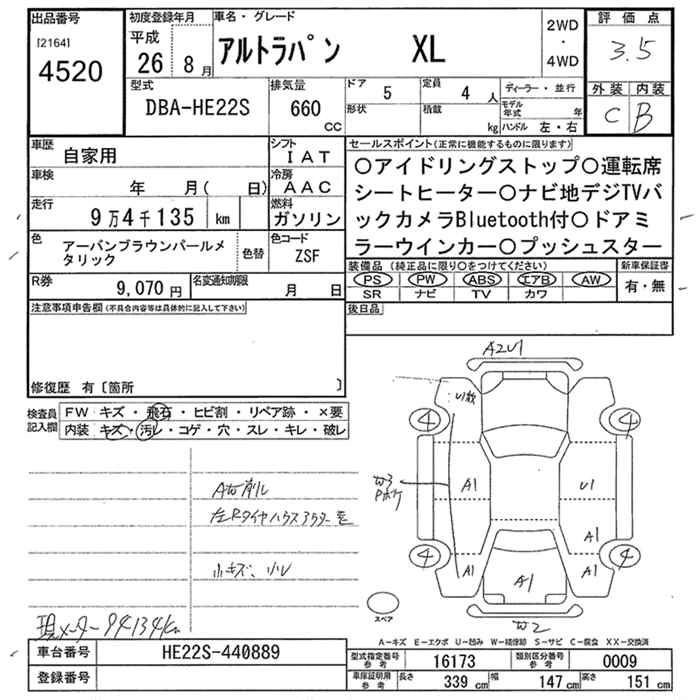 出品番号
[2164]
4520
初度登録年月
平成
26 8月
車名・グレード
アルトラパン XL
2WD
・
4WD
評価点
3.5
外装 内装
C B
型式
DBA-HE22S
排気量
660
CC
ドア 5
形状
定員 4 人
積載 kg
ディーラー・並行
モデル年式 年
ハンドル 左・右
車歴
自家用
シフト
IAT
車検
年 月( 日)
冷房
AAC
走行
9万4千135 km
燃料
ガソリン
色
アーバンブラウンパールメ
タリック
色替
色コード
ZSF
R券
9,070 円
名変通知期限
月 日
セールスポイント(正常に機能するものに限ります)
○アイドリングストップ○運転席
シートヒーター○ナビ地デジTVバ
ックカメラBluetooth付○ドアミ
ラーウインカー○プッシュスター
装備品(純正品に限り○をつけてください)
PS PW ABS エアB AW
SR ナビ TV カワ
新車保証書
有・無
後日品
注意事項申告欄(不具合内容等は具体的に記入して下さい)
修復歴 有〔箇所 〕
検査員
記入欄
FW キズ・飛石・ヒビ割・リペア跡・×要
内装 キズ・汚レ・コゲ・穴・スレ・キレ・破レ
A2U1
4 4
A1 U1
A1
4 4
A1 A1
A1
スペア
小キズ、
現メーター94134km
A-キズ E-エクボ U-凹み W-補修跡 S-サビ C-腐食 XX-交換済
車台番号 HE22S-440889
登録番号
型式指定番号
参考
16173
類別区分番号
参考
0009
車庫証明用
参考
長さ 339 cm 幅 147 cm 高さ 151 cm